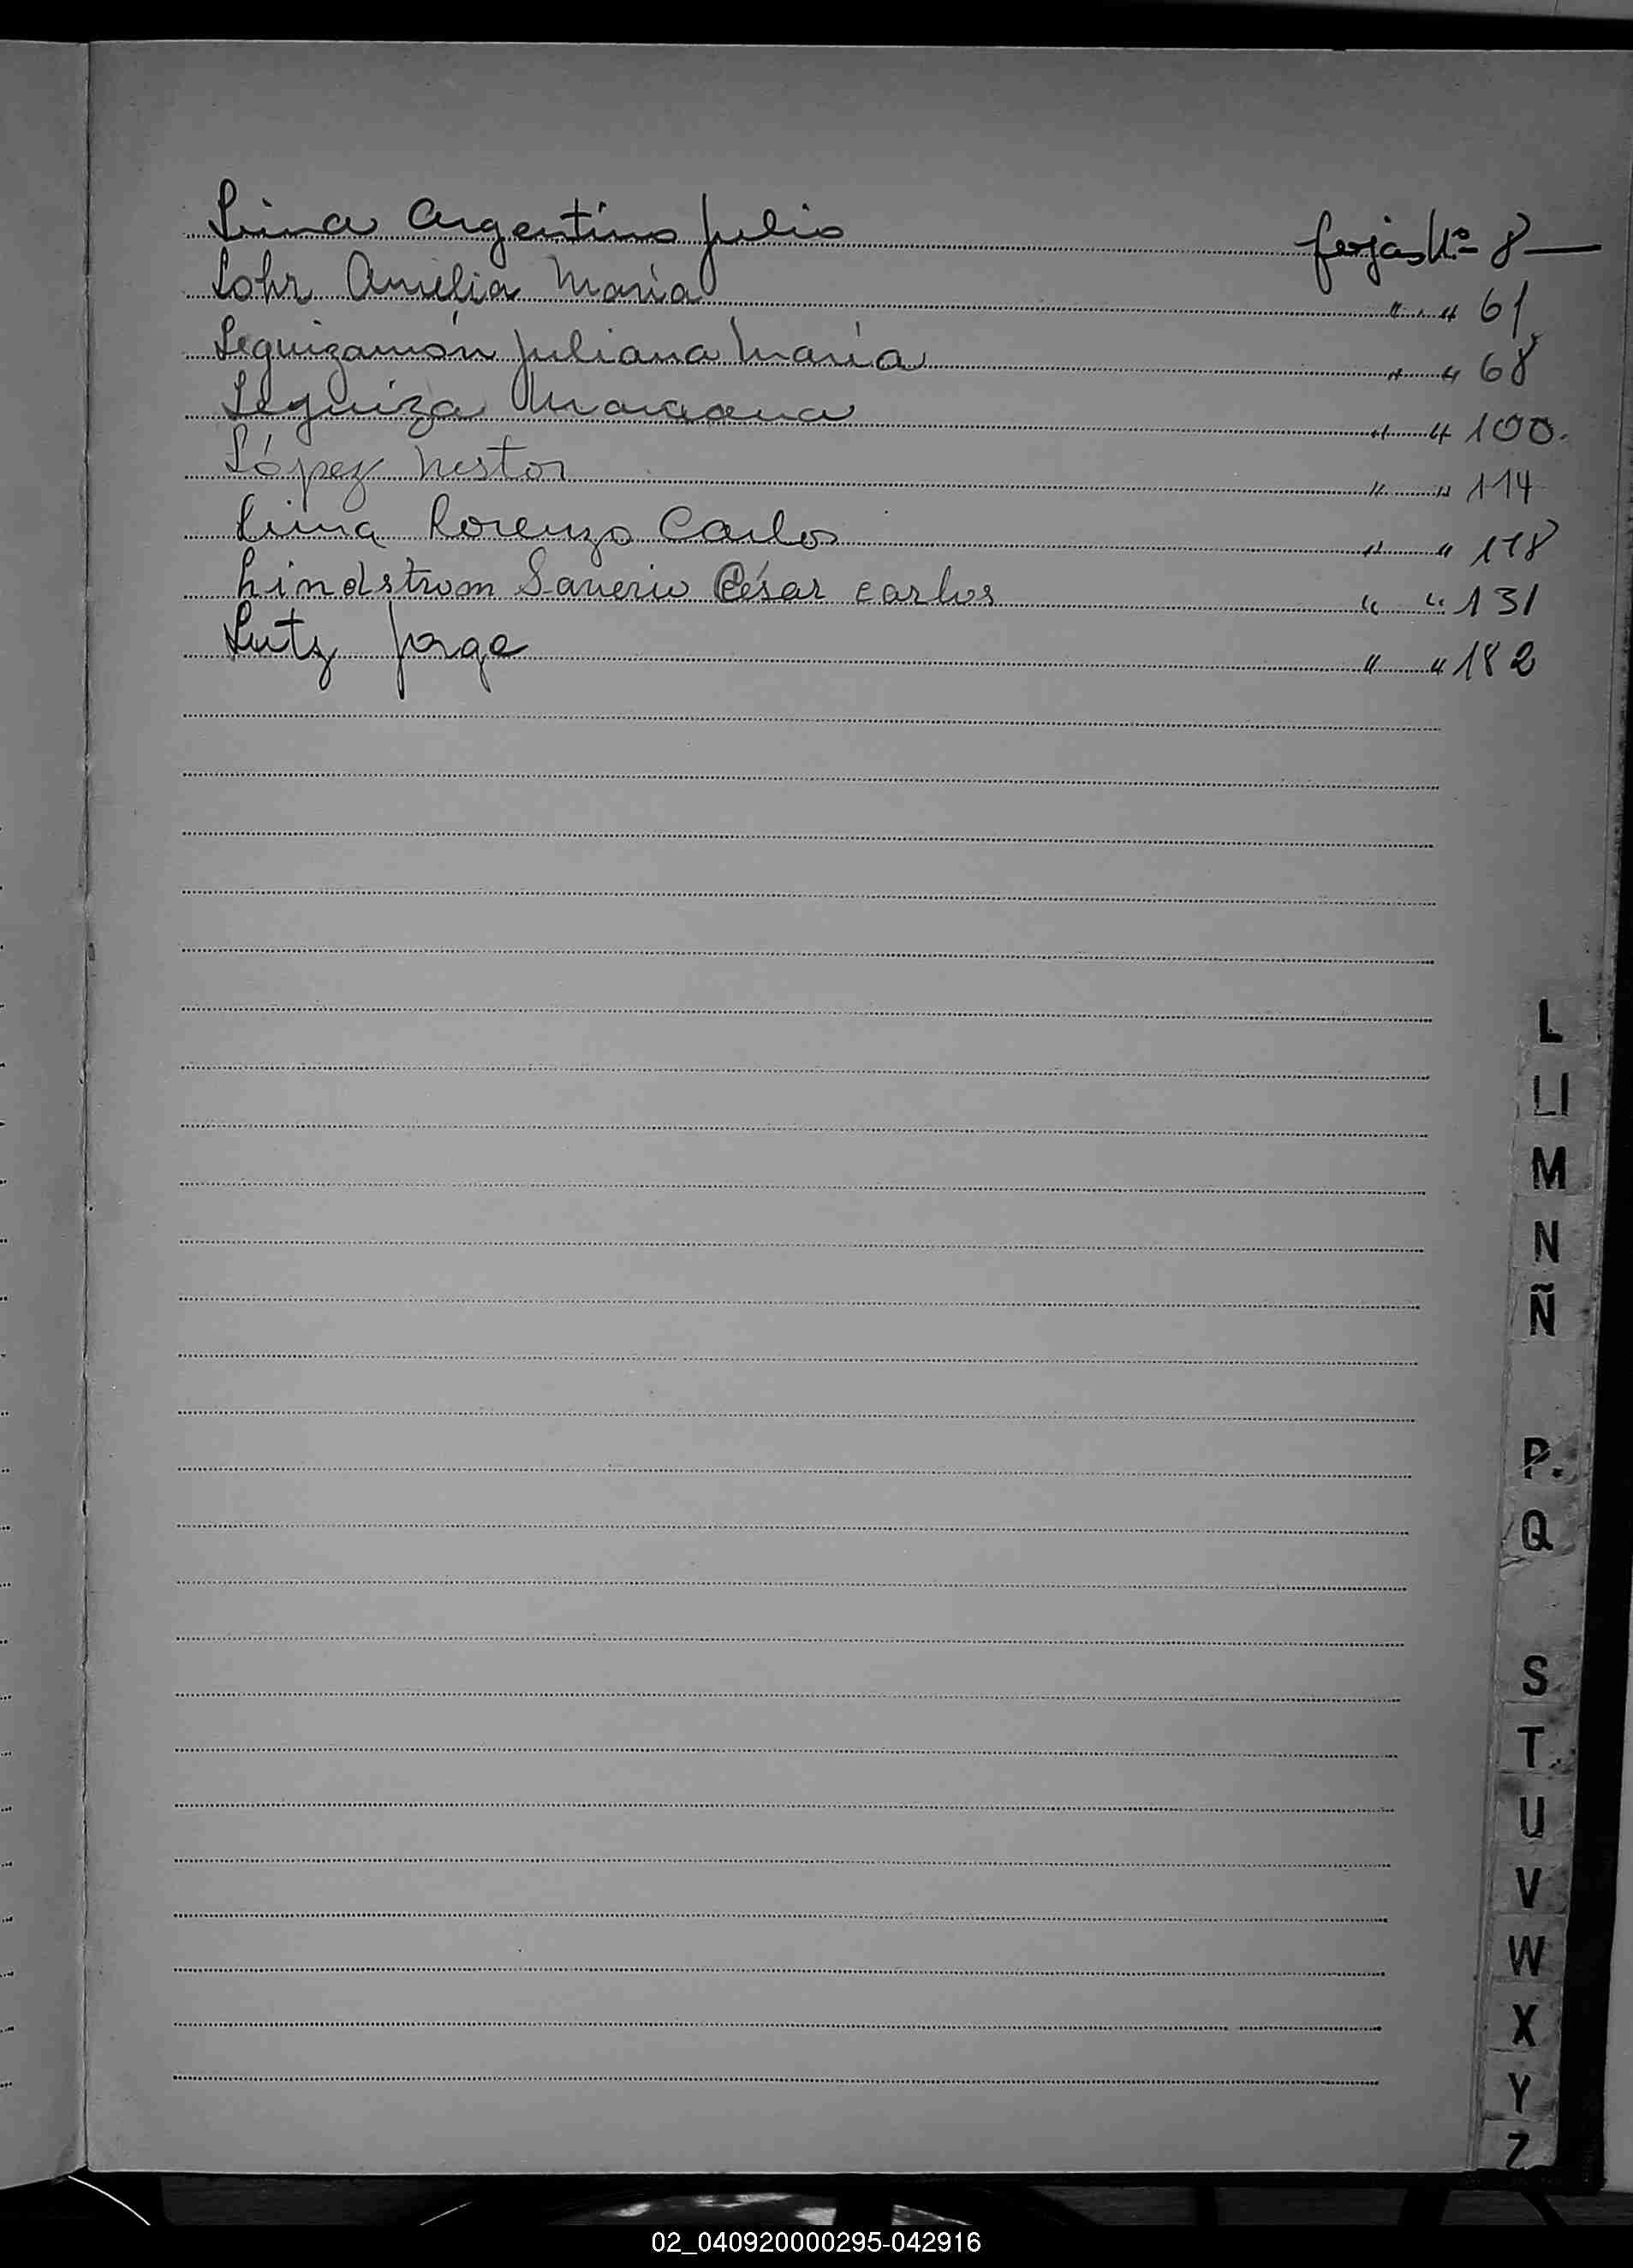 Lima Argentino Julio fojas Nº 8 —
Lohr Amelia María " " 61
Leguizamón Juliana María " " 68
Leguiza " " 100.
López Nestor " " 114
Lima Lorenzo Carlos " " 118
Lindstrom Saverio César Carlos " " 131
Lutz Jorge " " 182
L
Ll
M
N
Ñ
P.
Q
S
T
U
V
W
X
Y
Z
02_040920000295-042916